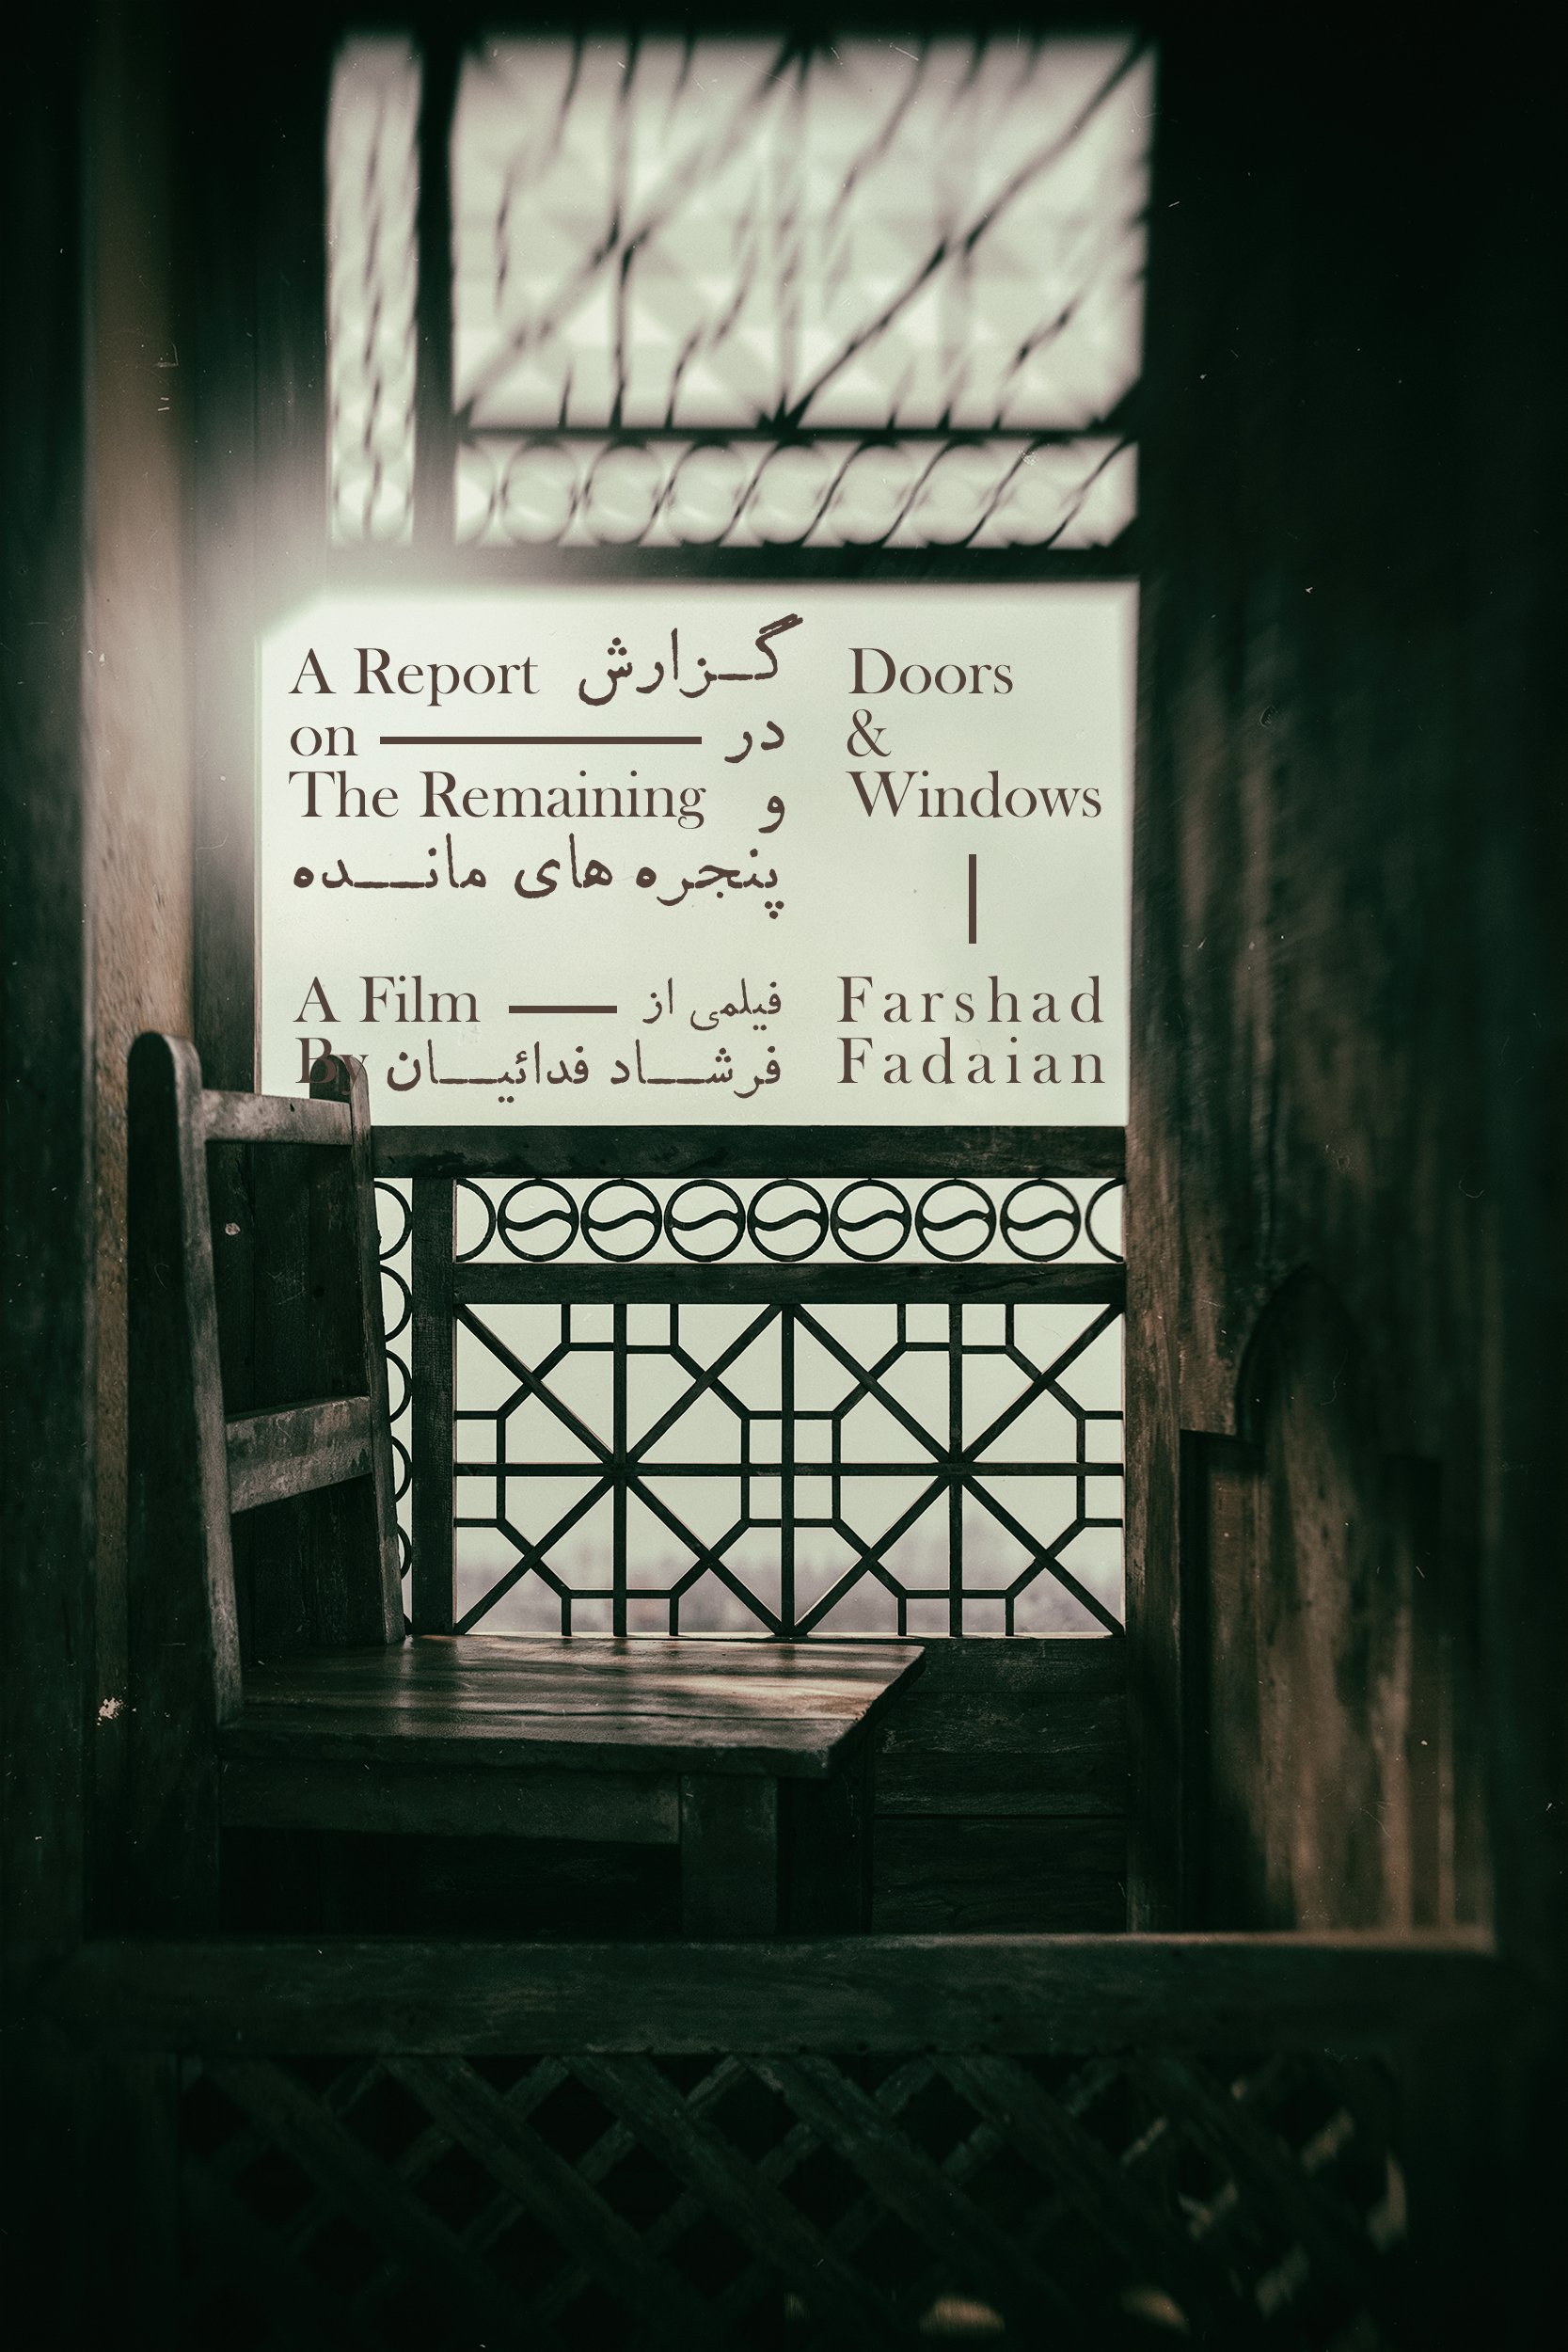 A Report گزارش Doors
on در &
The Remaining و Windows
پنجره های مانده
A Film فیلمی از Farshad
By فرشاد فدائیان Fadaian